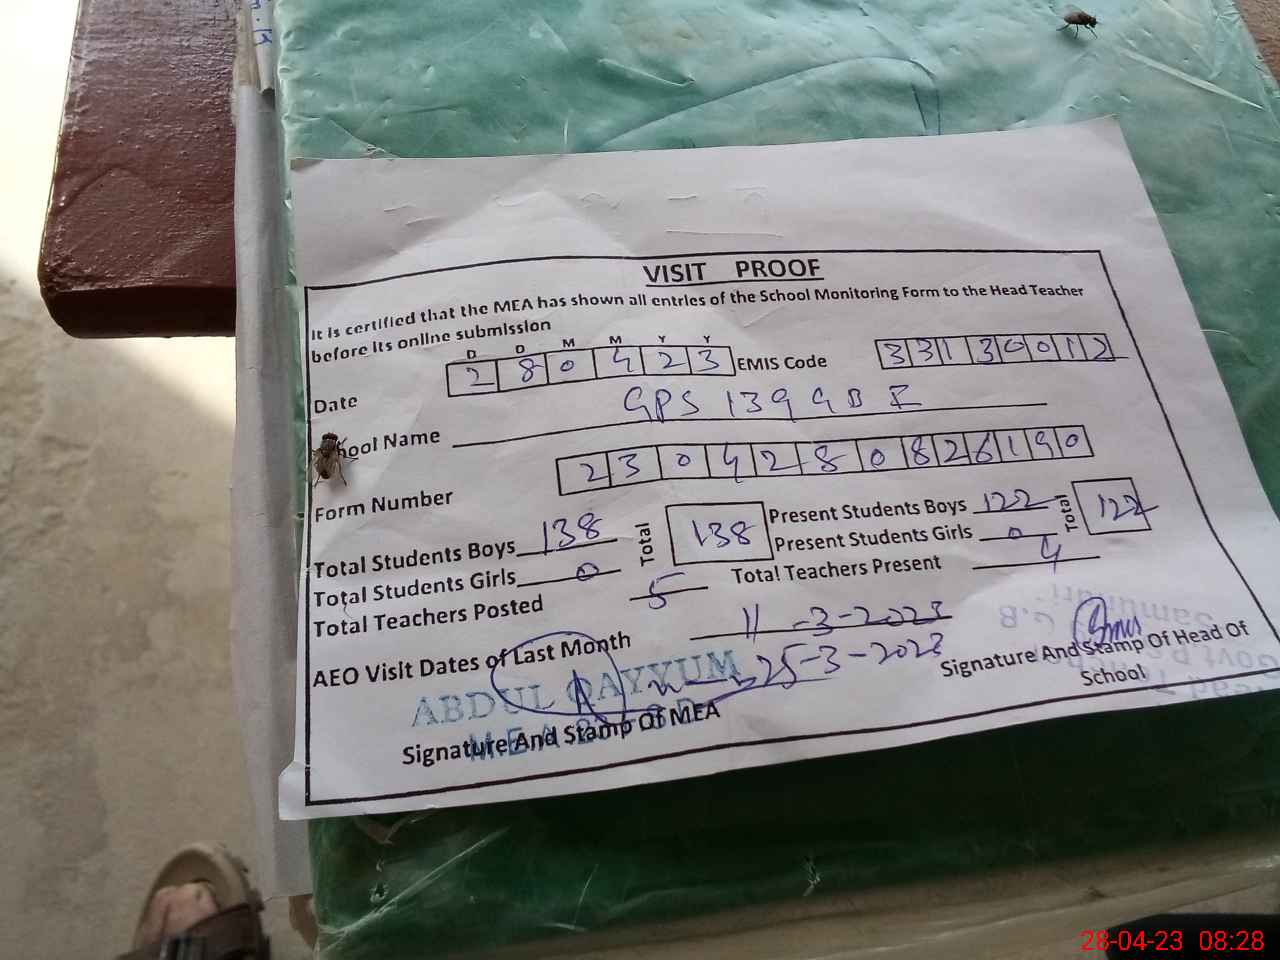 VISIT PROOF
It is certified that the MEA has shown all entries of the School Monitoring Form to the Head Teacher
before its online submission
D D M M Y Y
Date 2 8 0 4 2 3 EMIS Code 3 3 1 3 0 0 1 2
School Name GPS 139 GB I
Form Number 2 3 0 4 2 8 0 8 2 6 1 9 0
Total Students Boys 138 Total 138 Present Students Boys 122 Total 122
Total Students Girls 0 Present Students Girls 0
Total Teachers Posted 5 Total Teachers Present 4
AEO Visit Dates of Last Month 11-3-2023
25-3-2023
ABDUL QAYYUM
M.E.A
Signature And Stamp Of MEA
Signature And Stamp Of Head Of
School
28-04-23 08:28